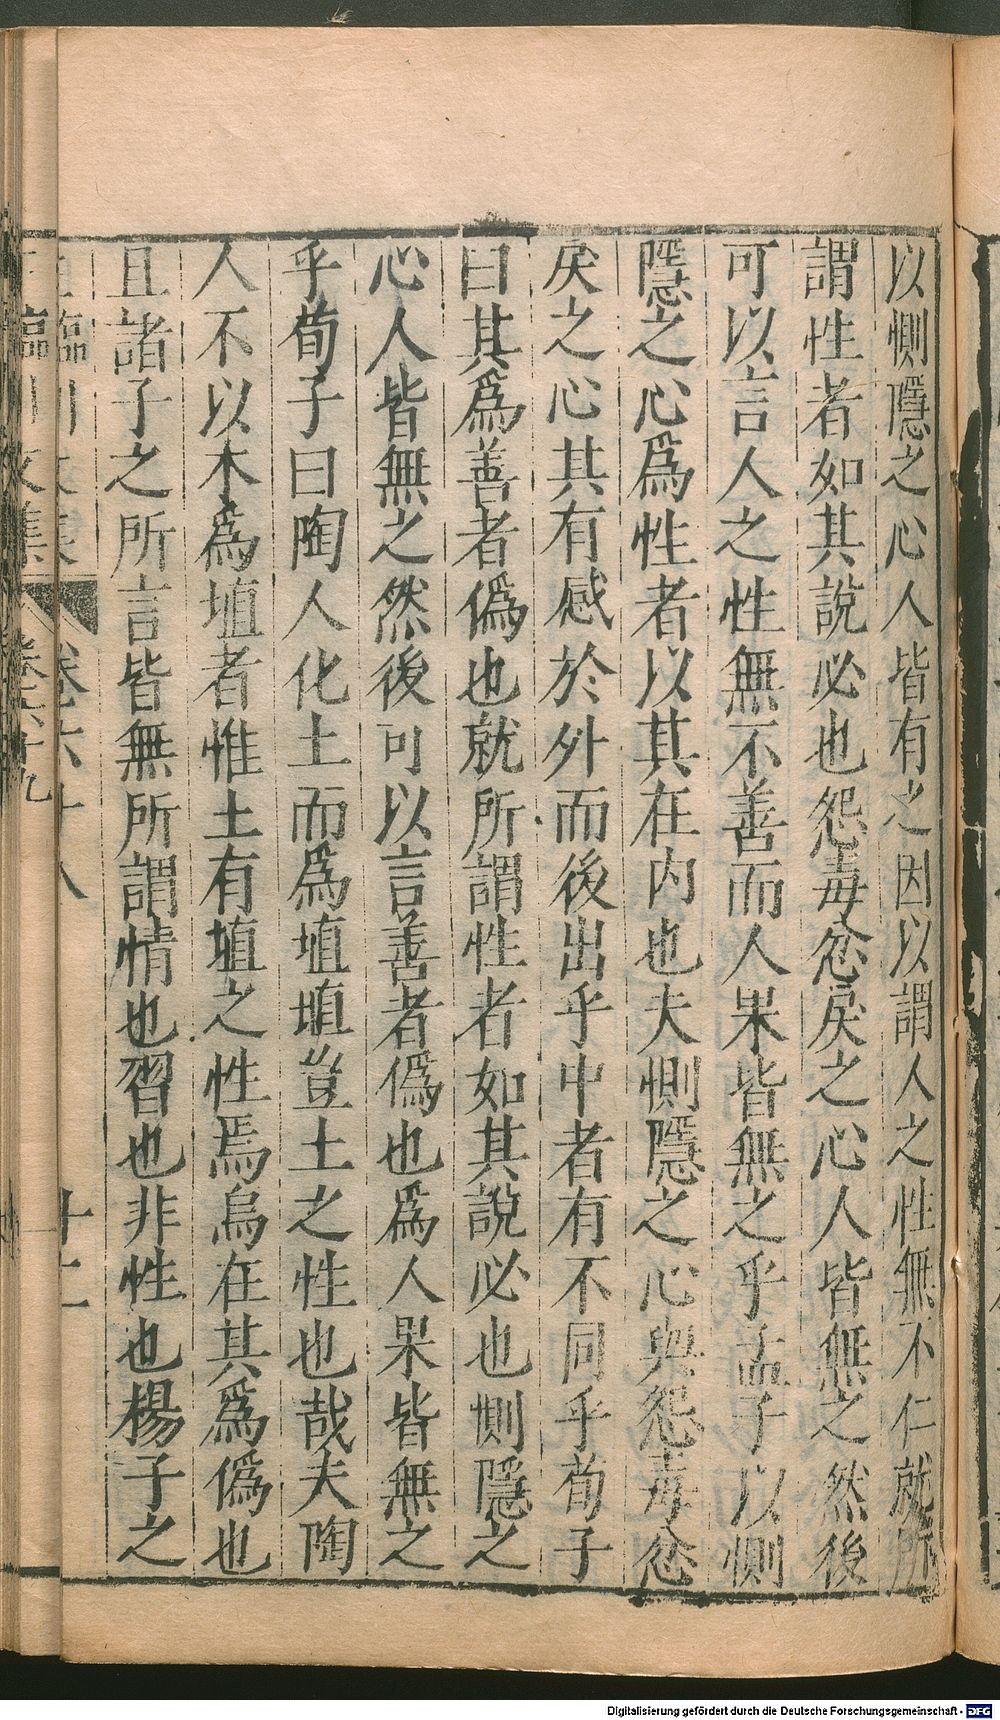 以惻隱之心人皆有之因以謂人之性無不仁就所
謂性者如其說必也怨毒忿戾之心人皆無之然後
可以言人之性無不善而人果皆無之乎孟子以惻
隱之心爲性者以其在內也夫惻隱之心與怨毒忿
戾之心其有感於外而後出乎中者有不同乎荀子
曰其爲善者僞也就所謂性者如其說必也惻隱之
心人皆無之然後可以言善者僞也爲人果皆無之
乎荀子曰陶人化土而爲埴埴豈土之性也哉夫陶
人不以木爲埴者惟土有埴之性焉烏在其爲僞也
且諸子之所言皆無所謂情也習也非性也楊子之
臨川文集 卷六十八 十二
臨川文集 卷六十九
Digitalisierung gefördert durch die Deutsche Forschungsgemeinschaft - DFG